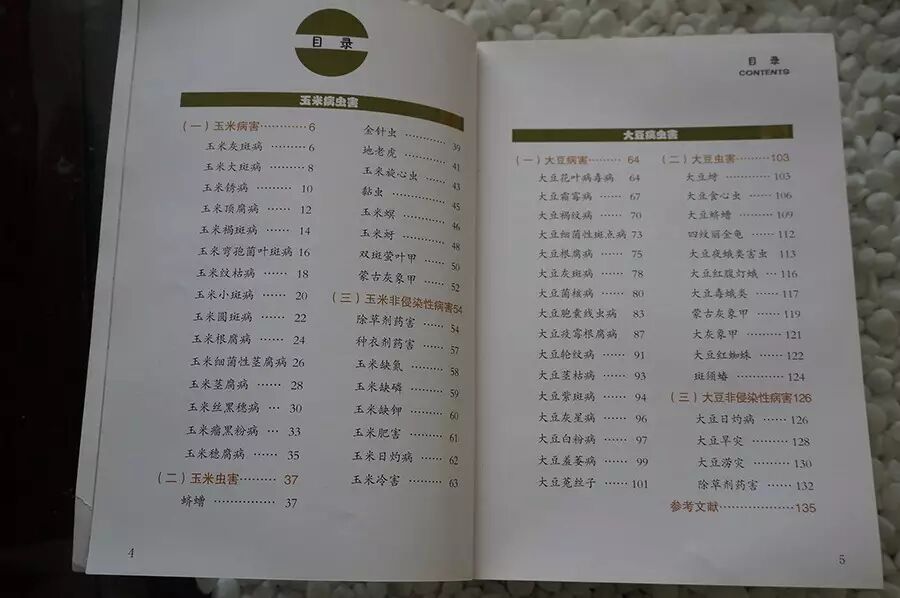 目 录
玉米病虫害
（一）玉米病害··········6
玉米灰斑病 ······ 6
玉米大斑病 ······ 8
玉米锈病 ······ 10
玉米顶腐病 ······ 12
玉米褐斑病 ······ 14
玉米弯孢菌叶斑病 16
玉米纹枯病 ······ 18
玉米小斑病 ······ 20
玉米圆斑病 ······ 22
玉米根腐病 ······ 24
玉米细菌性茎腐病 26
玉米茎腐病 ······ 28
玉米丝黑穗病 ··· 30
玉米瘤黑粉病 ··· 33
玉米穗腐病 ······ 35
（二）玉米虫害········ 37
蛴螬 ··············· 37
金针虫 ············ 39
地老虎 ············ 41
玉米旋心虫 ······ 43
黏虫 ··············· 45
玉米螟 ············ 46
玉米蚜 ············ 48
双斑萤叶甲 ······ 50
蒙古灰象甲 ······ 52
（三）玉米非侵染性病害54
除草剂药害 ······ 54
种衣剂药害 ······ 57
玉米缺氮 ········· 58
玉米缺磷 ········· 59
玉米缺钾 ········· 60
玉米肥害 ········· 61
玉米日灼病 ······ 62
玉米冷害 ········· 63
4
目 录
CONTENTS
大豆病虫害
（一）大豆病害········ 64
大豆花叶病毒病 64
大豆霜霉病 ······ 67
大豆褐纹病 ······ 70
大豆细菌性斑点病 73
大豆根腐病 ······ 75
大豆灰斑病 ······ 78
大豆菌核病 ······ 80
大豆胞囊线虫病 83
大豆疫霉根腐病 87
大豆轮纹病 ······ 91
大豆茎枯病 ······ 93
大豆紫斑病 ······ 94
大豆灰星病 ······ 96
大豆白粉病 ······ 97
大豆羞萎病 ······ 99
大豆菟丝子 ······ 101
（二）大豆虫害·········103
大豆蚜 ············ 103
大豆食心虫 ······ 106
大豆蛴螬 ········· 109
四纹丽金龟 ······ 112
大豆夜蛾类害虫 113
大豆红腹灯蛾 ··· 116
大豆毒蛾类 ······ 117
蒙古灰象甲 ······ 119
大灰象甲 ········· 121
大豆红蜘蛛 ······ 122
斑须蝽 ············ 124
（三）大豆非侵染性病害126
大豆日灼病 ······ 126
大豆旱灾 ········· 128
大豆涝灾 ········· 130
除草剂药害 ······ 132
参考文献··················135
5